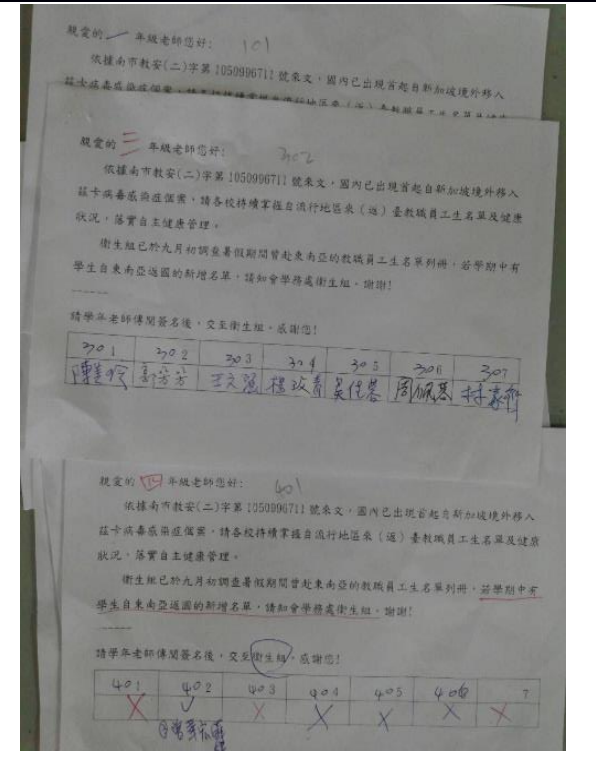 親愛的 一 年級老師您好: 101
依據南市教安(二)字第1050996711號來文,國內已出現首起自新加坡境外移入
親愛的 三 年級老師您好: 302
依據南市教安(二)字第1050996711號來文,國內已出現首起自新加坡境外移入
茲卡病毒感染症個案,請各校持續掌握自流行地區來(返)臺教職員工生名單及健康
狀況,落實自主健康管理。
衛生組已於九月初調查暑假期間曾赴東南亞的教職員工生名單列冊,若學期中有
學生自東南亞返國的新增名單,請知會學務處衛生組。謝謝!
-----
請學年老師傳閱簽名後,交至衛生組。感謝您!
301 302 303 304 305 306 307
親愛的 四 年級老師您好: 401
依據南市教安(二)字第1050996711號來文,國內已出現首起自新加坡境外移入
茲卡病毒感染症個案,請各校持續掌握自流行地區來(返)臺教職員工生名單及健康
狀況,落實自主健康管理。
衛生組已於九月初調查暑假期間曾赴東南亞的教職員工生名單列冊,若學期中有
學生自東南亞返國的新增名單,請知會學務處衛生組。謝謝!
-----
請學年老師傳閱簽名後,交至衛生組。感謝您!
401 402 403 404 405 406 7